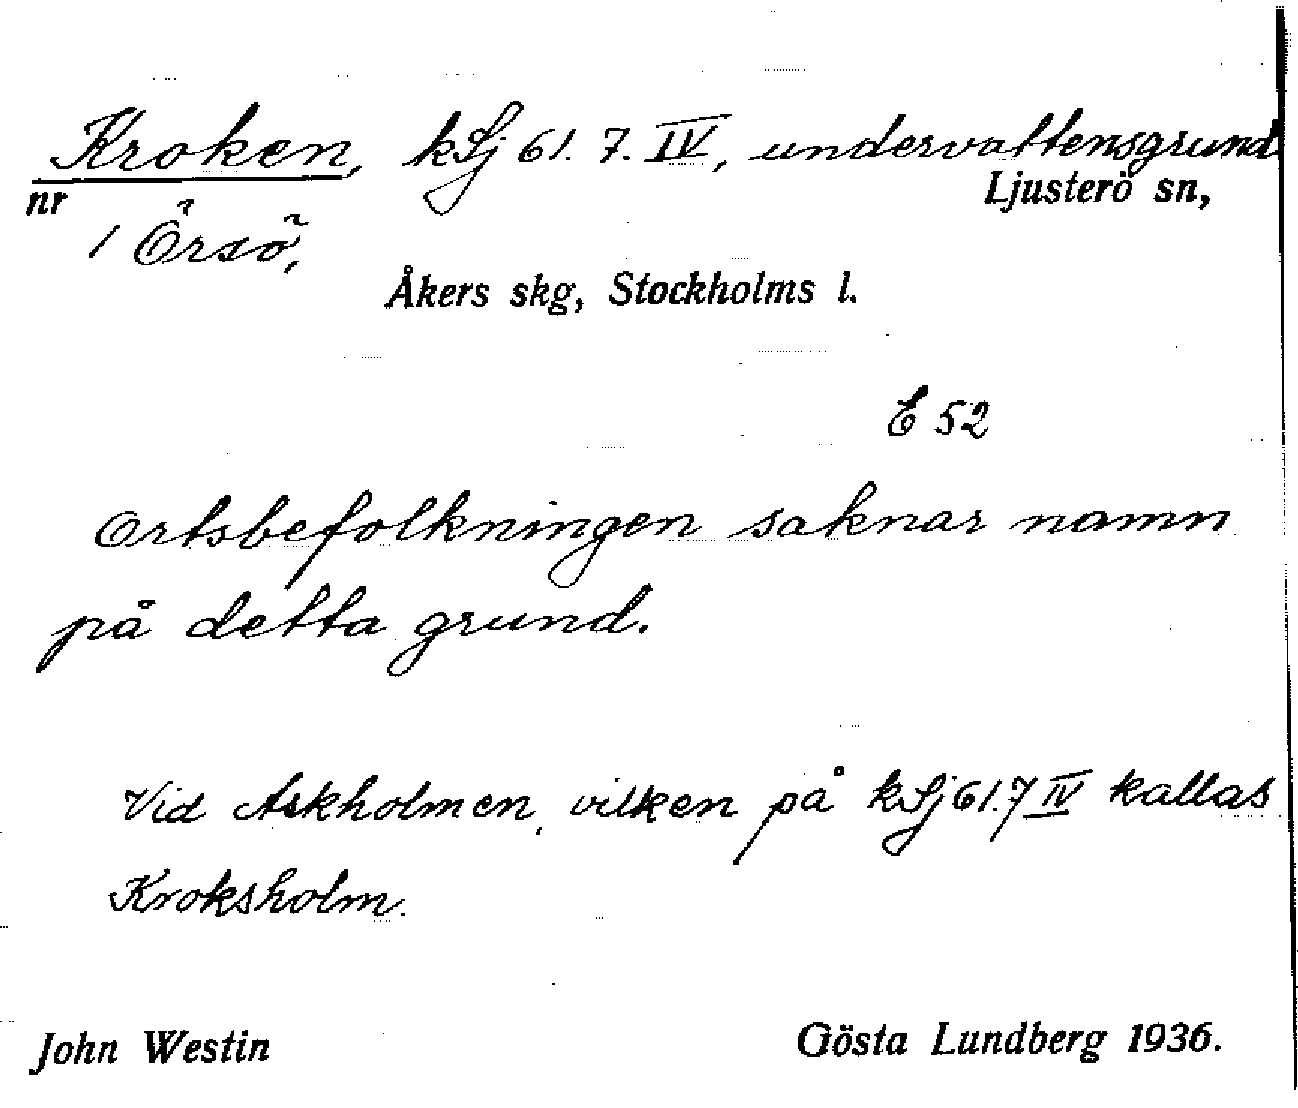 Kroken, kSj 61. 7. IV, undervattensgrund
nr Ljusterö sn,
1 Örsö,
Åkers skg, Stockholms l.
E 52
Ortsbefolkningen saknar namn
på detta grund.
Vid Askholmen, vilken på kSj 61.7 IV kallas
Kroksholm.
John Westin Gösta Lundberg 1936.